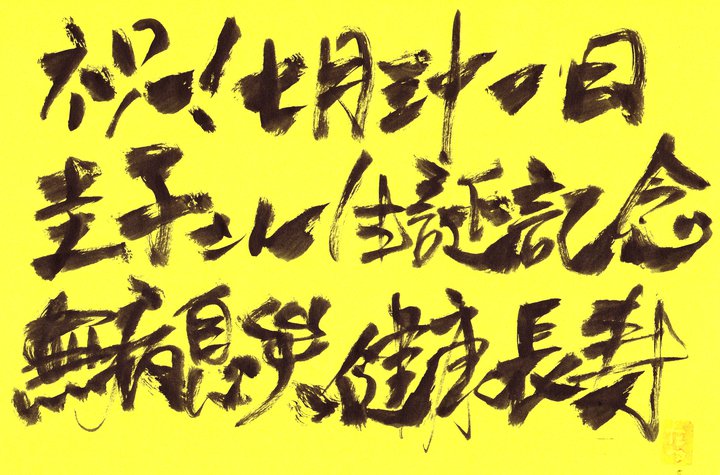 祝!七月三十一日
圭子さん生誕記念
無病息災、健康長寿